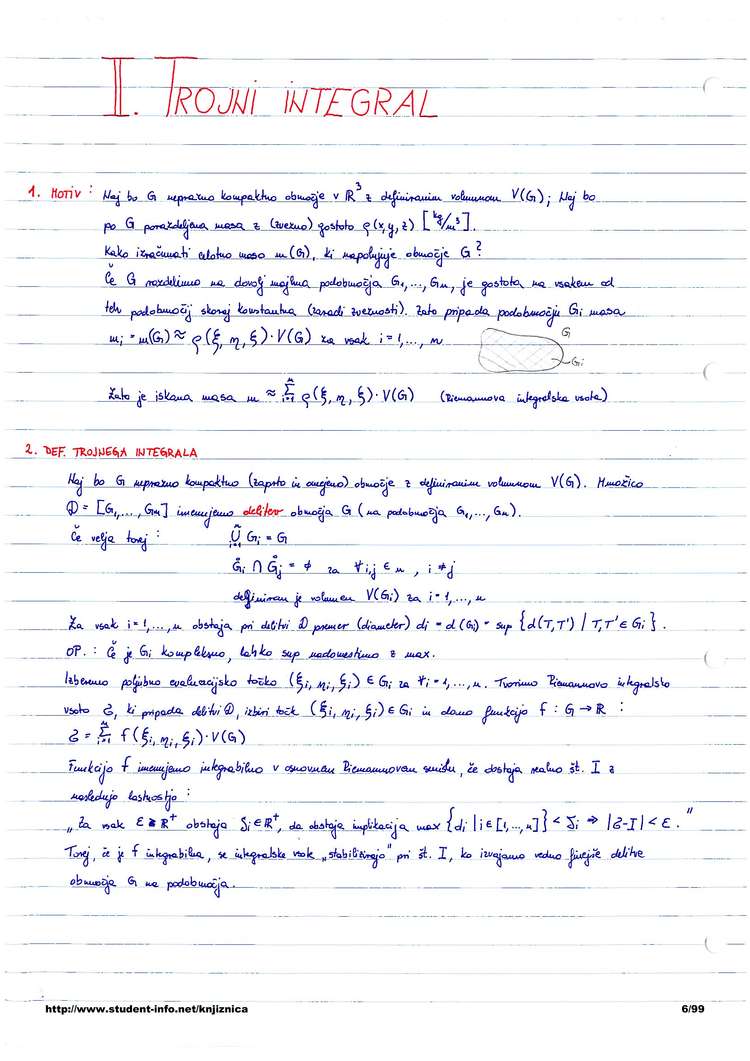 II. TROJNI INTEGRAL
1. MOTIV : Naj bo G neprazno kompaktno območje v ℝ³ z definiranim volumnom V(G); Naj bo
po G porazdeljena masa z (zvezno) gostoto ρ(x,y,z) [kg/m³].
Kako izračunati celotno maso m(G), ki napolnjuje območje G?
Če G razdelimo na dovolj majhna podobmočja G₁,..., Gₙ, je gostota na vsakem od
teh podobmočij skoraj konstantna (zaradi zveznosti). Zato pripada podobmočju Gᵢ masa
mᵢ = m(G) ≈ ρ(ξ, η, ξ)·V(G) za vsak i = 1,..., n
G
Gᵢ
Zato je iskana masa m ≈ ∑ⁿᵢ₌₁ ρ(ξ, η, ξ)·V(G) (Riemannova integralska vsota)
2. DEF. TROJNEGA INTEGRALA
Naj bo G neprazno kompaktno (zaprto in omejeno) območje z definiranim volumnom V(G). Množico
D = [G₁,..., Gₙ] imenujemo delitev območja G (na podobmočja G₁,..., Gₙ).
Če velja torej : ⋃ⁿᵢ₌₁ Gᵢ = G
G̊ᵢ ∩ G̊ⱼ = ∅ za ∀i,j ∈ n , i ≠ j
definiran je volumen V(Gᵢ) za i = 1,..., n
Za vsak i = 1,..., n obstaja pri delitvi D premer (diameter) dᵢ = d(Gᵢ) = sup {d(T,T') / T,T' ∈ Gᵢ}.
OP. : Če je Gᵢ kompleksno, lahko sup nadomestimo z max.
Izberemo poljubno evaluacijsko točko (ξᵢ, ηᵢ, ξᵢ) ∈ Gᵢ za ∀i = 1,..., n. Tvorimo Riemannovo integralsko
vsoto Ƨ, ki pripada delitvi D, izbiri točk (ξᵢ, ηᵢ, ξᵢ) ∈ Gᵢ in dano funkcijo f : G → ℝ :
Ƨ = ∑ⁿᵢ₌₁ f(ξᵢ, ηᵢ, ξᵢ)·V(G)
Funkcijo f imenujemo integrabilno v osnovnem Riemannovem smislu, če obstaja realno št. I z
naslednjo lastnostjo :
„Za vsak ε ∈ ℝ⁺ obstaja δᵢ ∈ ℝ⁺, da obstaja implikacija max {dᵢ | i ∈ [1,..., n]} < δᵢ ⇒ |Ƨ-I| < ε."
Torej, če je f integrabilna, se integralske vsote „stabilizirajo" pri št. I, ko izvajamo vedno finejše delitve
območja G na podobmočja.
http://www.student-info.net/knjiznica
6/99